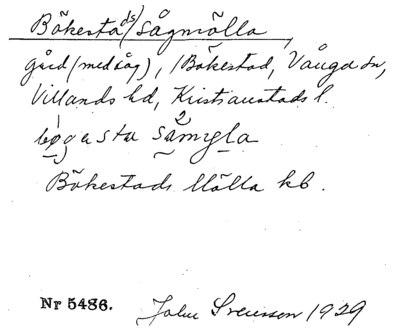 Bökesta(ds) Sågmölla
gård (med såg), /Bökestad, Vånga sn,
Villands hd, Kristianstads l.
bögasta såmyla
Bökestads Mölla kb.
Nr 5486. John Svensson 1929